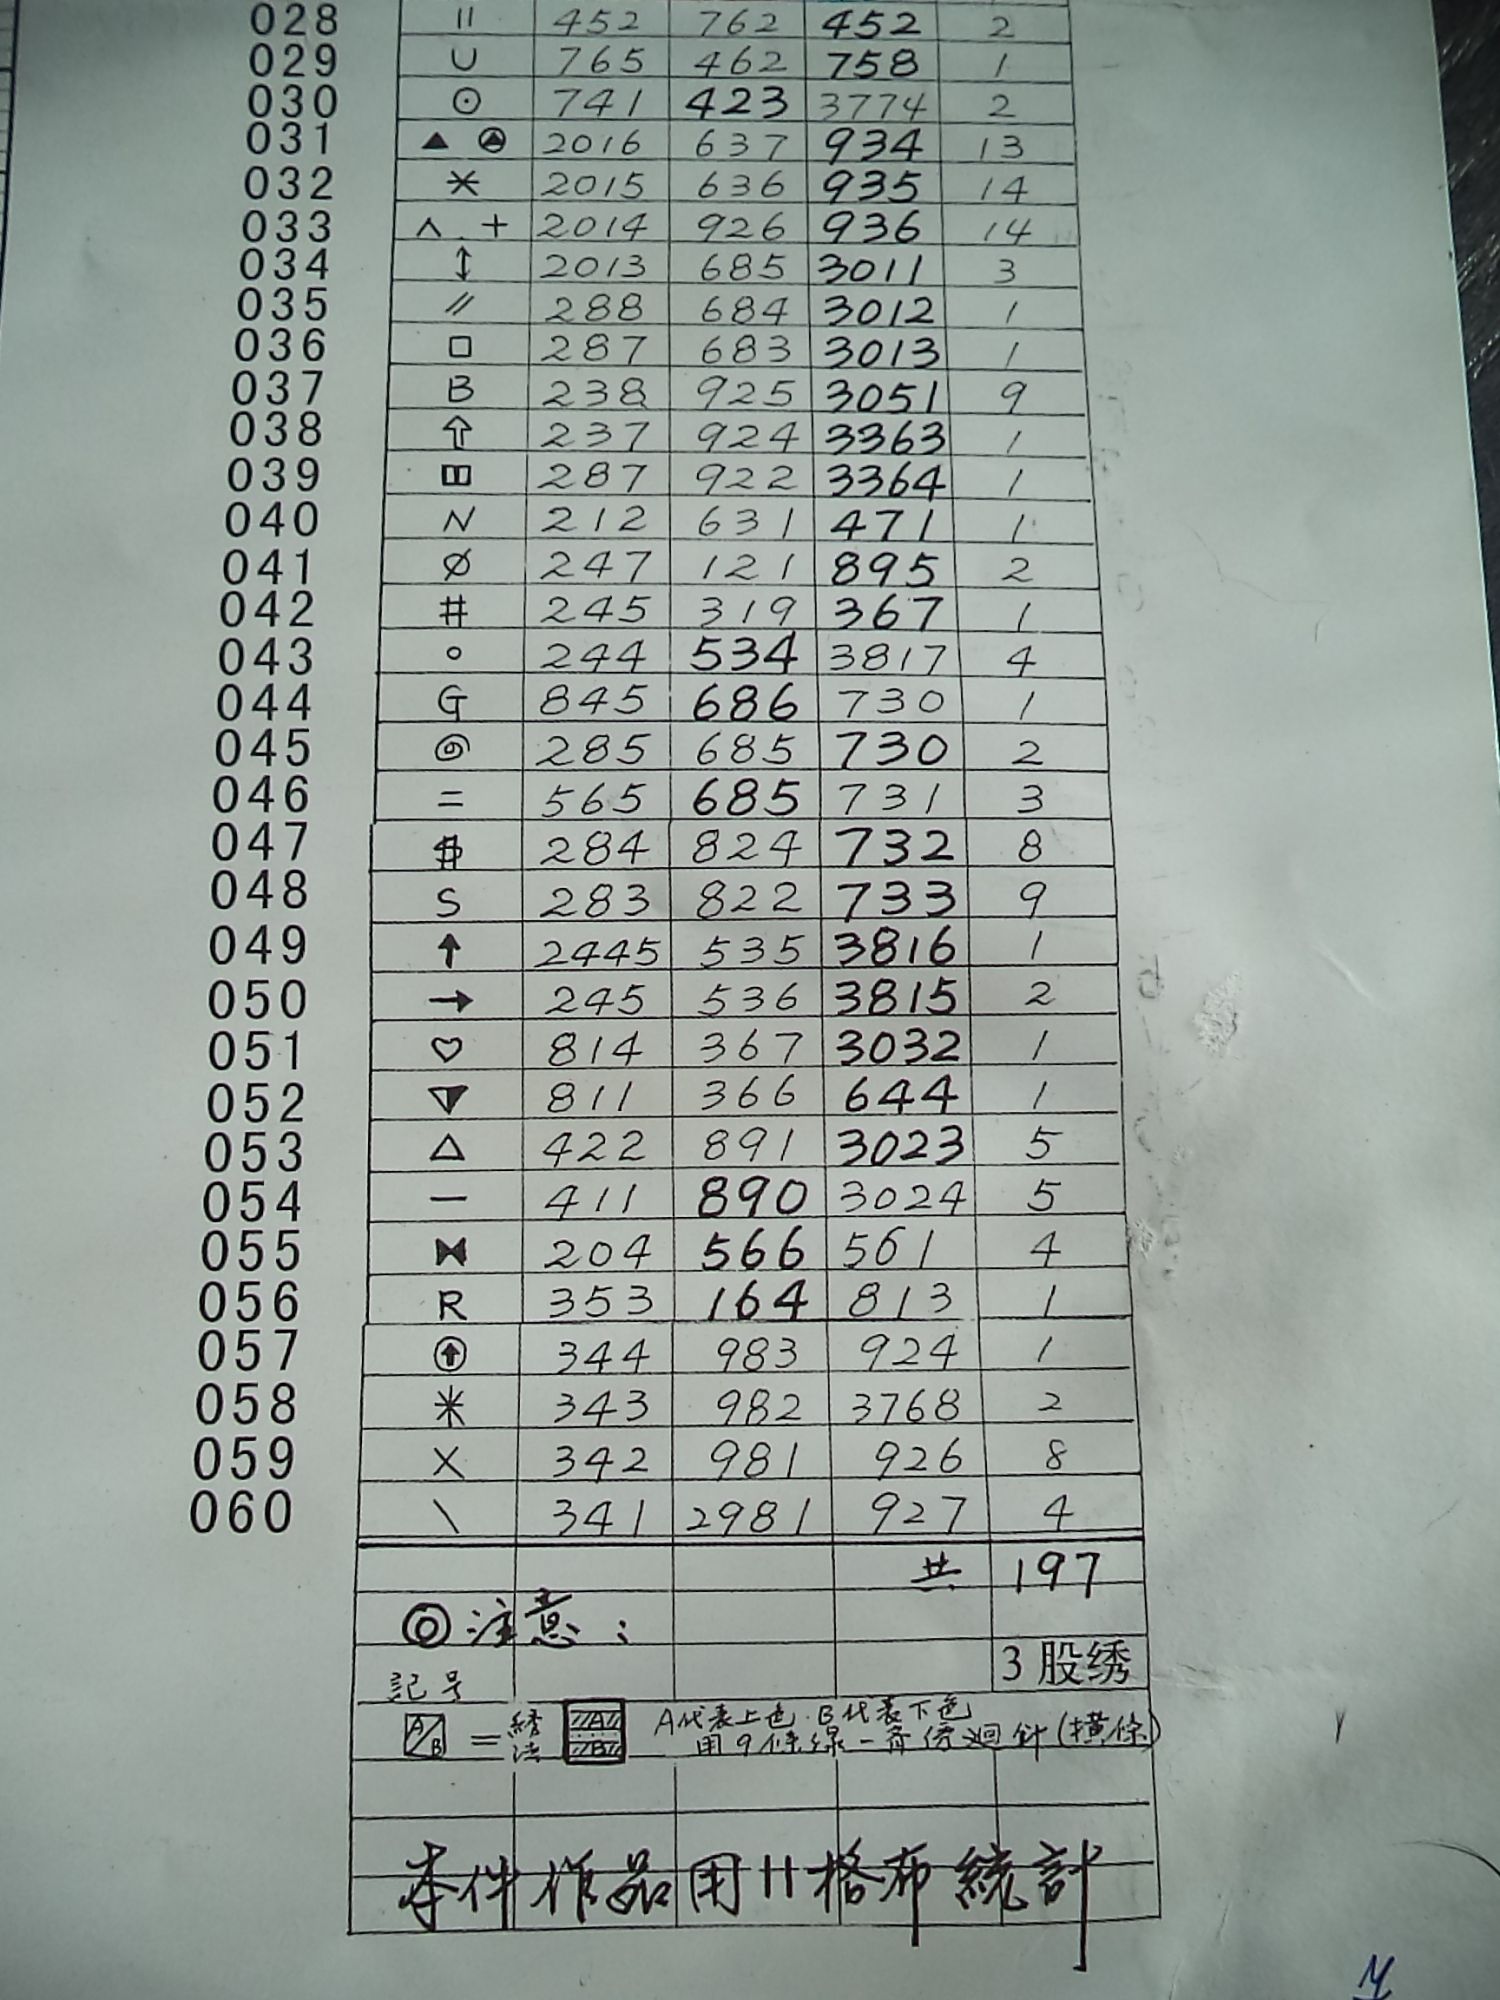 028 || 452 762 452 2
029 ∪ 765 462 758 1
030 ⊙ 741 423 3774 2
031 ▲ 2016 637 934 13
032 * 2015 636 935 14
033 ∧ . + 2014 926 936 14
034 ↕ 2013 685 3011 3
035 // 288 684 3012 1
036 □ 287 683 3013 1
037 B 238 925 3051 9
038 ⇧ 237 924 3363 1
039 ◫ 287 922 3364 1
040 N 212 631 471 1
041 ∅ 247 121 895 2
042 # 245 319 367 1
043 ○ 244 534 3817 4
044 G 845 686 730 1
045 ◎ 285 685 730 2
046 = 565 685 731 3
047 $ 284 824 732 8
048 S 283 822 733 9
049 ↑ 2445 535 3816 1
050 → 245 536 3815 2
051 ♡ 814 367 3032 1
052 811 366 644 1
053 △ 422 891 3023 5
054 — 411 890 3024 5
055 ⧓ 204 566 561 4
056 R 353 164 813 1
057 344 983 924 1
058 米 343 982 3768 2
059 X 342 981 926 8
060 \ 341 2981 927 4
共 197
◎注意：
3股绣
記号
A/B = 綉法 A B A代表上色.B代表下色
用9條線一齊
迴針(橫條)
本件作品用11格布統計